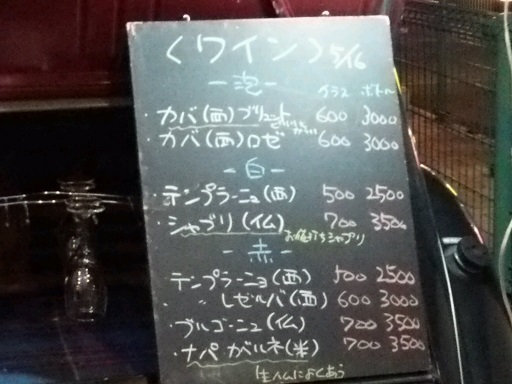 〈ワイン〉5/16
－泡－ グラス ボトル
・カバ(西)ブリュット 600 3000
カバ(西)ロゼ 600 3000
－白－
・テンプラーニュ(西) 500 2500
・シャブリ(仏) 700 3500
お値打ちシャブリ
－赤－
テンプラーニョ(西) 500 2500
〃 レゼルバ(西) 600 3000
・ブルゴーニュ(仏) 700 3500
・ナパ カベルネ(米) 700 3500
(生ハムによくあう